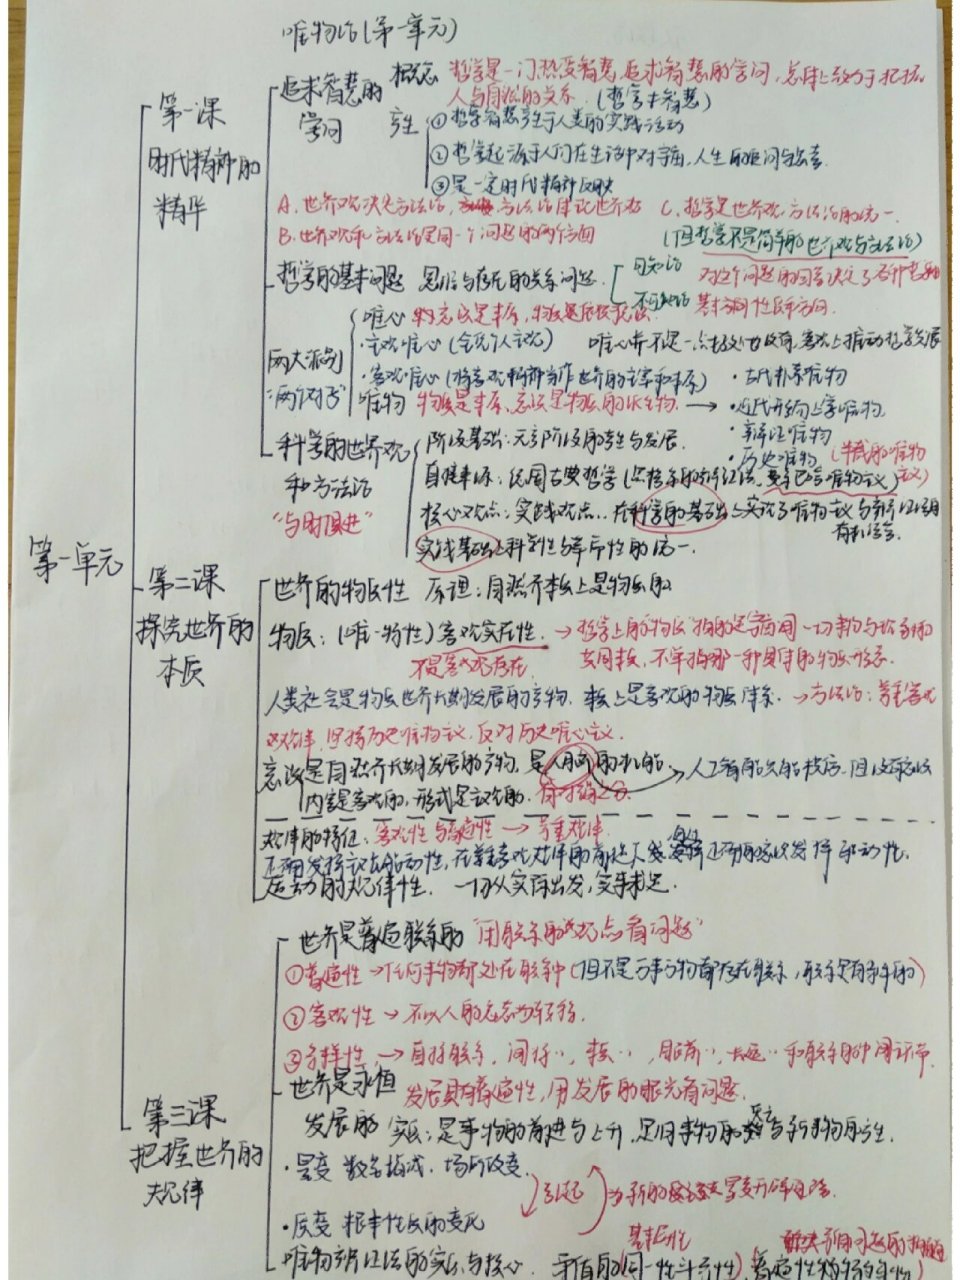 唯物论(第一单元)
第一单元
第一课
时代精神的
精华
追求智慧的
学问
概念 哲学是一门热爱智慧,追求智慧的学问,总体上致力于把握
人与自然的关系. (哲学≠智慧)
产生 ①哲学智慧产生于人类的实践活动
②哲学起源于人们在生活中对宇宙,人生的追问与思考.
③是一定时代精神反映
A.世界观决定方法论,方法论体现世界观 C.哲学是世界观方法论的统一.
B.世界观和方法论是同一个问题的两个方面 (但哲学不是简单的世界观与方法论)
哲学的基本问题 思维与存在的关系问题. 可知论
不可知论 对这个问题的回答决定了各种哲学的
基本方向性质和方向.
两大派别
“两个对子”
唯心
·主观唯心(全凭个人主观) 唯心并不是一点好处也没有,客观上推动哲学发展
·客观唯心(将客观精神当作世界的主宰和本原)
唯物 物质是本原,意识是物质的派生物. →
·古代朴素唯物
·近代形而上学唯物.
·辩证唯物
·历史唯物
科学的世界观
和方法论
“与时俱进”
阶级基础:无产阶级的产生与发展.
直接来源:德国古典哲学
核心观点:实践观点. 在科学的基础上实现了唯物主义与辩证法的
有机结合.
实践基础上科学性与革命性的统一.
第二课
探究世界的
本质
世界的物质性 原理:自然界本质上是物质的
物质:(唯一特性)客观实在性. → 哲学上的物质指的是宇宙间一切事物与现象的
共同本质,不单指哪一种具体的物质形态.
不是客观存在
人类社会是物质世界长期发展的产物,本质上是客观的物质体系. →方法论:尊重客观
规律,坚持历史唯物主义,反对历史唯心主义.
意识是自然界长期发展的产物,是人脑的机能. →人工智能只能模仿,但没有意识
内容是客观的,形式是主观的. 有对错之分.
规律的特征:客观性与普遍性 → 尊重规律.
正确发挥主观能动性,在尊重客观规律的前提下
运动的规律性. 一切从实际出发,实事求是.
第三课
把握世界的
规律
世界是普遍联系的 “用联系的观点看问题”
①普遍性 → 任何事物都处在联系中(但不是万事万物都存在联系,联系是有条件的)
②客观性 → 不以人的意志为转移.
③多样性, → 直接联系,间接〃,本质〃
世界是永恒
发展的
发展具有普遍性,用发展的眼光看问题.
实质:是事物的前进与上升,是旧事物的灭亡与新事物的产生.
·量变 数量增减,场所改变.
引起
·质变 根本性质的变化
唯物辩证法的实质与核心.
基本属性
矛盾的(同一性斗争性)